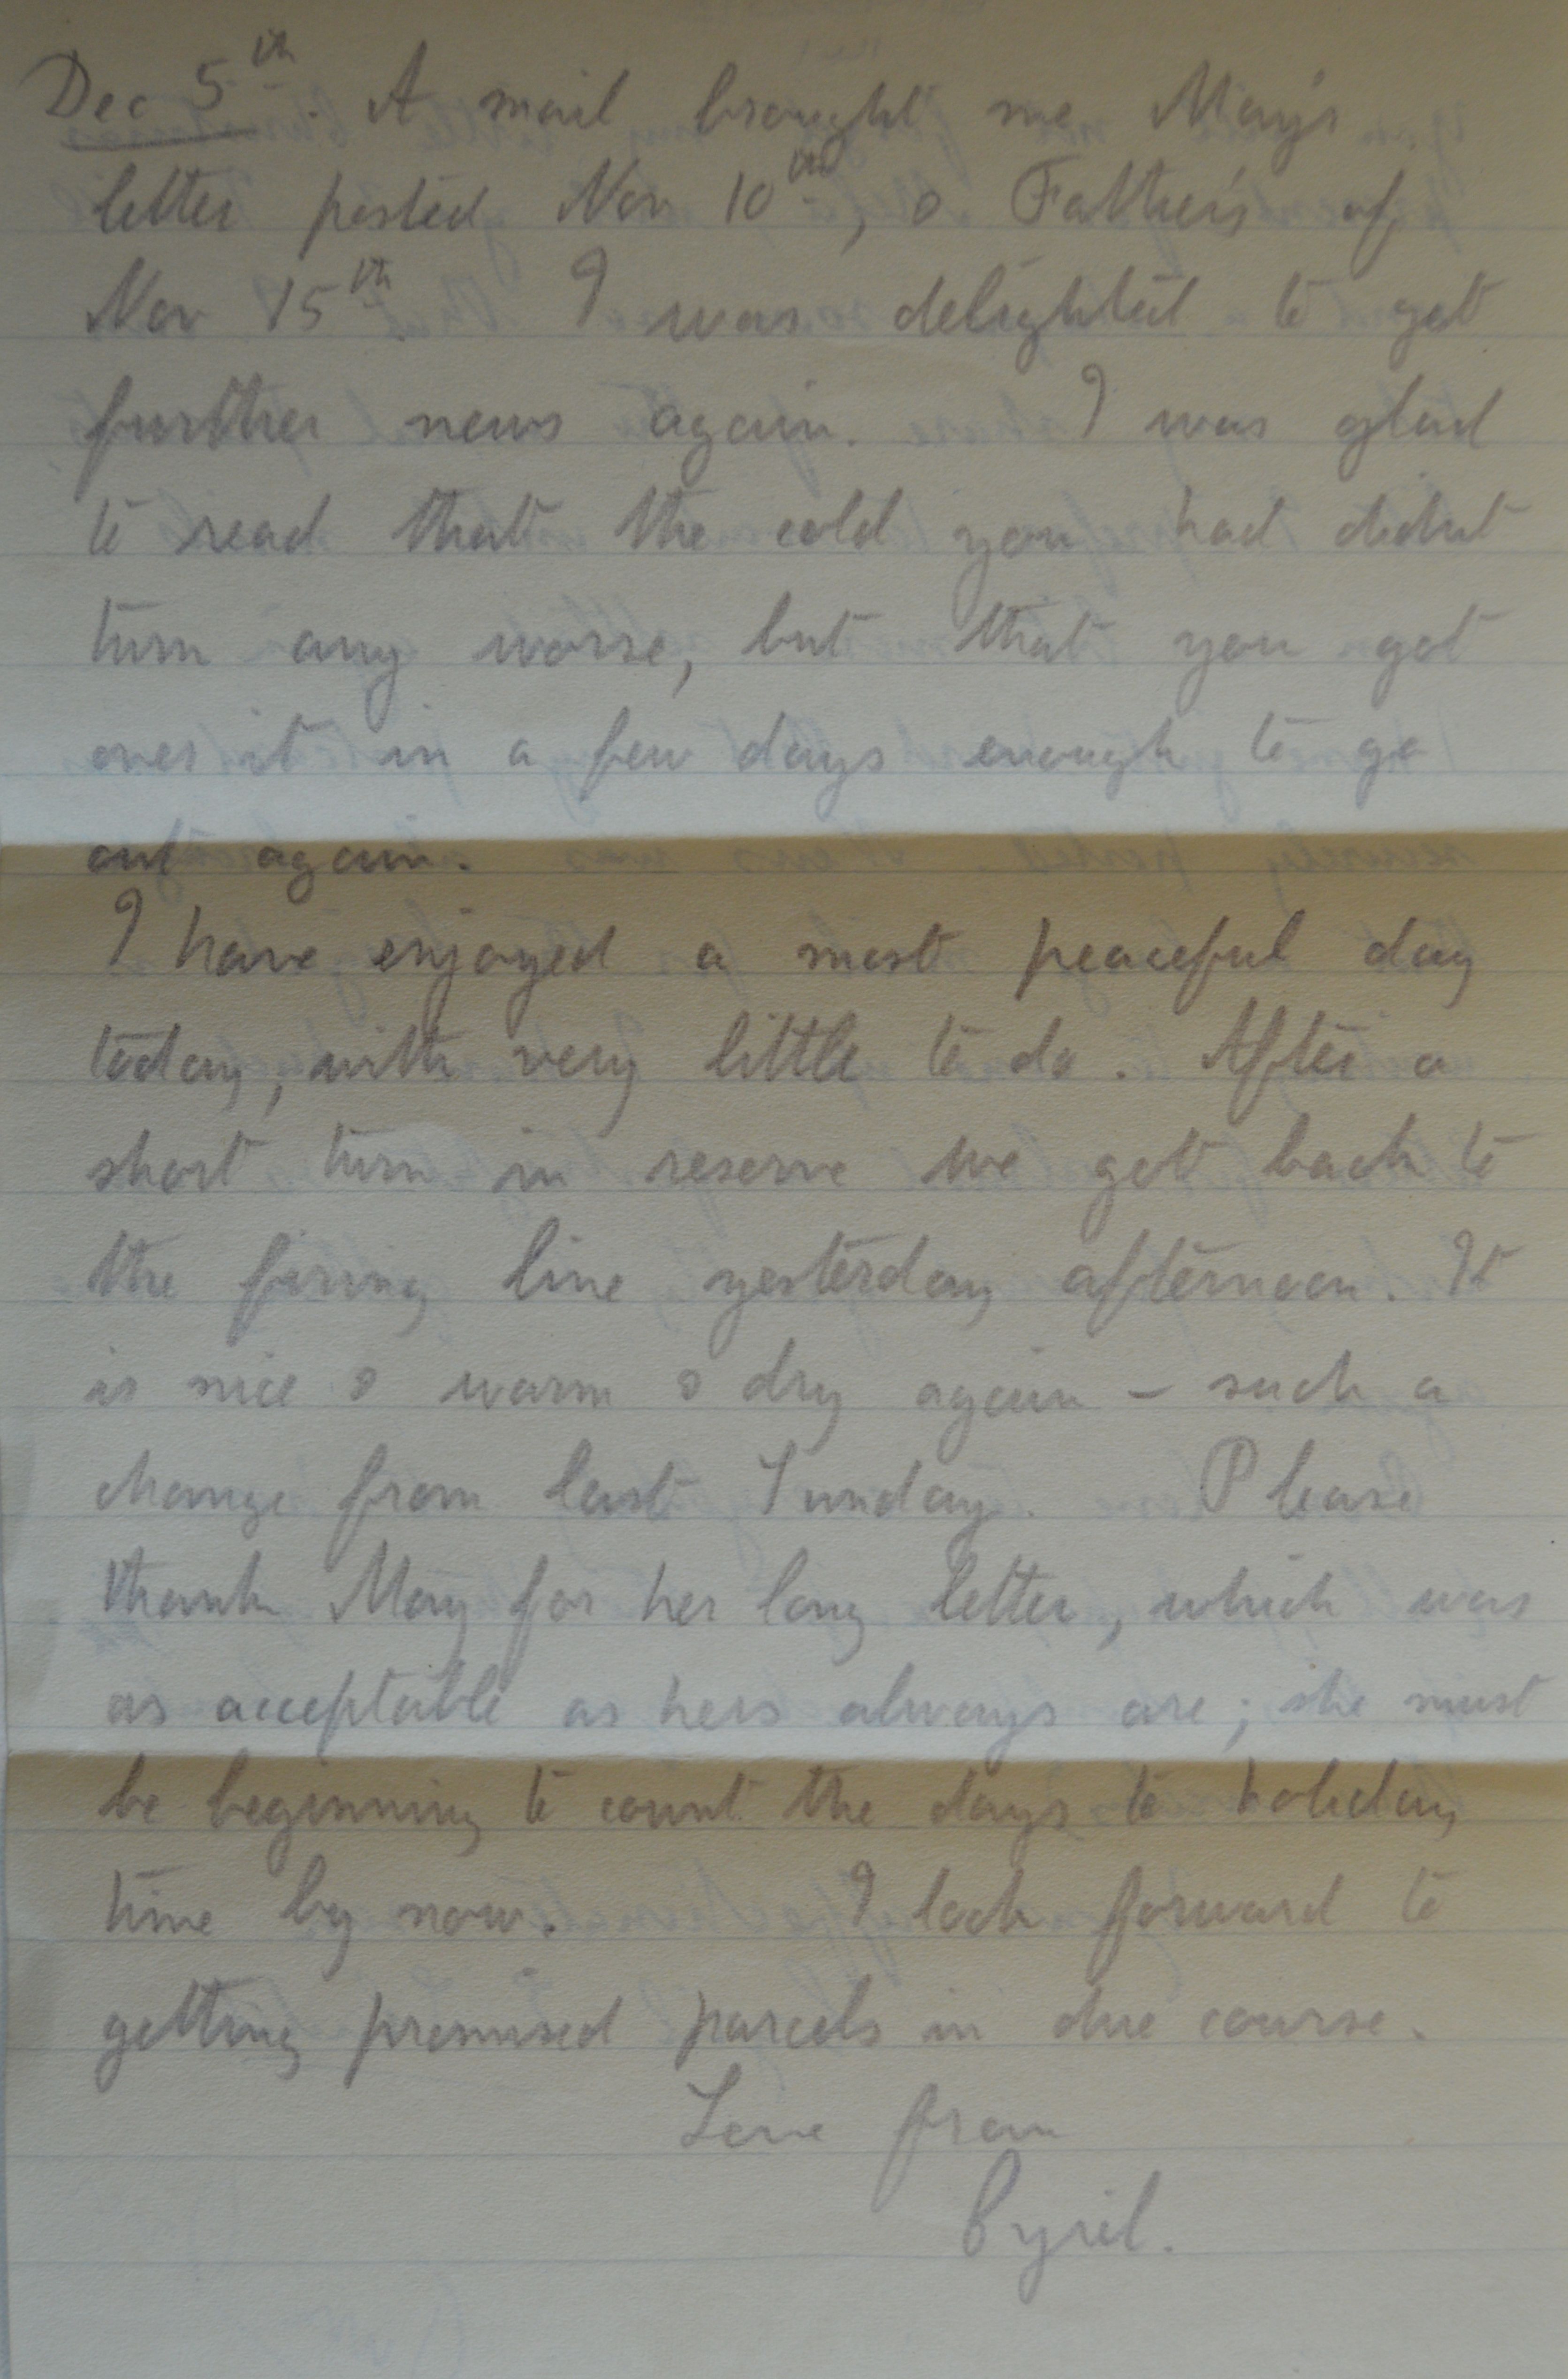 Dec 5th. A mail brought me May's
letter posted Nov 10th, & Father's of
Nov 15th I was delighted to get
further news again. I was glad
to read that the cold you had didnt
turn any worse, but that you got
over it in a few days enough to go
out again.
I have enjoyed a most peaceful day
today, with very little to do. After a
short turn in reserve we got back to
the firing line yesterday afternoon. It
is nice & warm & dry again – such a
change from last Sunday. Please
thank May for her long letter, which was
as acceptable as hers always are; she must
be beginning to count the days to holiday
time by now. I look forward to
getting promised parcels in due course.
Love from
Cyril.